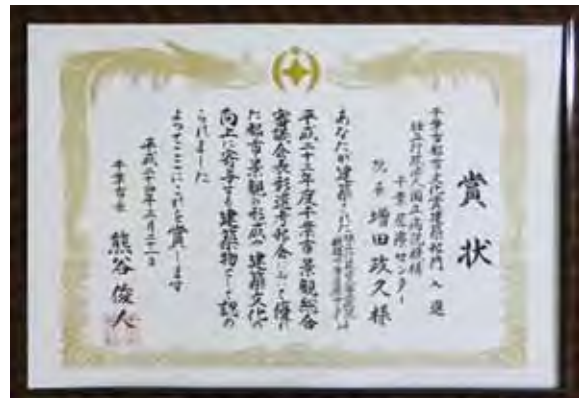 賞状
千葉市都市文化賞建築部門 入選
独立行政法人国立病院機構
千葉医療センター
院長 増田政久 様
あなたが建築された
は
平成二十三年度千葉市景観総合
審議会表彰選考部会において優れ
た都市景観の形成や建築文化の
向上に寄与する建築物として認め
られました
よってここにこれを賞します
平成二十四年三月二十一日
千葉市長 熊谷俊人